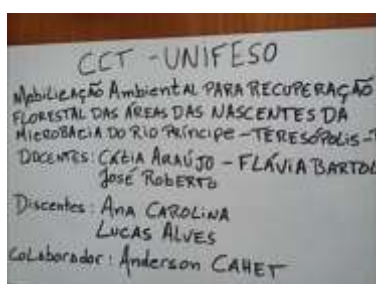 CCT - UNIFESO
Mobilização Ambiental PARA RECUPERAÇÃO
FLORESTAL DAS ÁREAS DAS NASCENTES DA
MICROBACIA DO RIO PRÍNCIPE - TERESÓPOLIS -
DOCENTES: CÁTIA ARAÚJO - FLÁVIA BARTOL
José ROBERTO
Discentes: ANA CAROLINA
LUCAS ALVES
Colaborador: Anderson CAHET